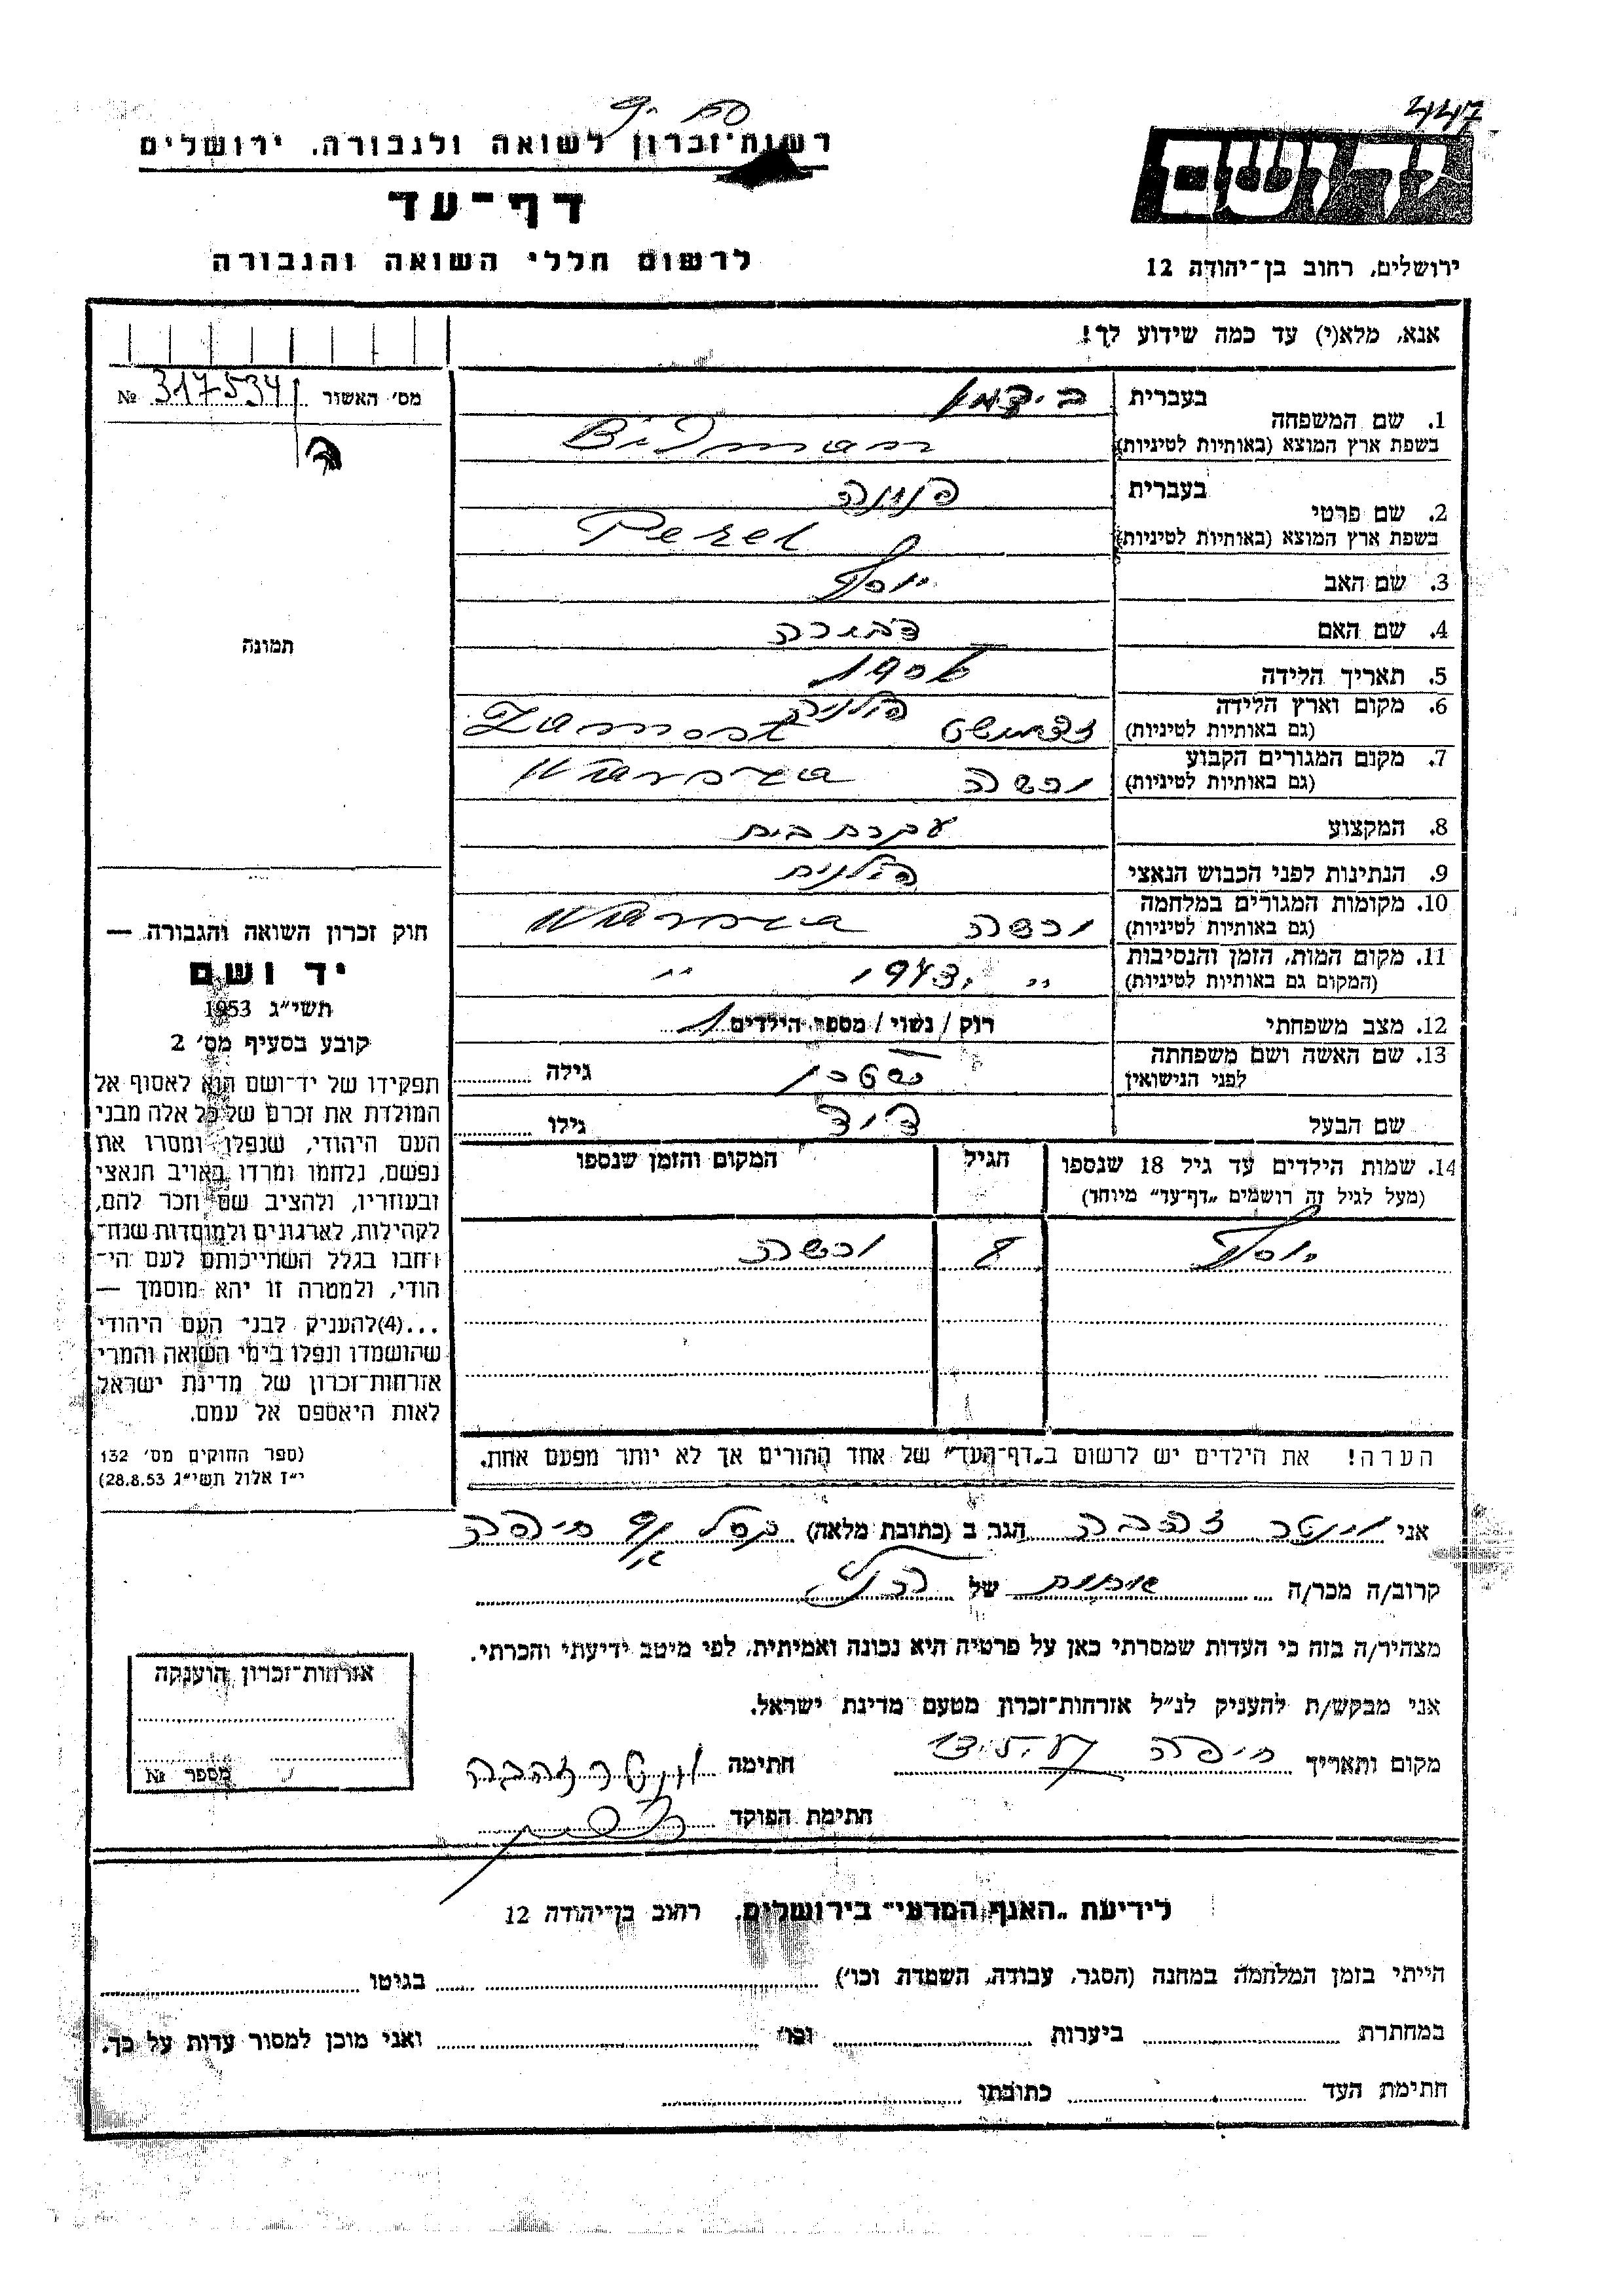 447
רשות־זכרון לשואה ולגבורה, ירושלים
דף־עד
לרשום חללי השואה והגבורה
יד ושם
ירושלים, רחוב בן־יהודה 12
אנא, מלא(י) עד כמה שידוע לך!
מס׳ האשור № 317534
1. שם המשפחה בעברית בידמן
בשפת ארץ המוצא (באותיות לטיניות) Bidman
2. שם פרטי בעברית פנינה
בשפת ארץ המוצא (באותיות לטיניות) Perel
3. שם האב יוסף
4. שם האם דבורה
5. תאריך הלידה
6. מקום וארץ הלידה (גם באותיות לטיניות) זמושט פולניה Zamost
7. מקום המגורים הקבוע (גם באותיות לטיניות) ורשה Warsza
8. המקצוע עקרת בית
9. הנתינות לפני הכבוש הנאצי פולנית
10. מקומות המגורים במלחמה (גם באותיות לטיניות) ורשה Warsza
11. מקום המות, הזמן והנסיבות (המקום גם באותיות לטיניות) " 1943 "
12. מצב משפחתי רוק / נשוי / מספר הילדים 1
13. שם האשה ושם משפחתה לפני הנישואין גילה
שם הבעל דוד גילו
14. שמות הילדים עד גיל 18 שנספו הגיל המקום והזמן שנספו
(מעל לגיל זה רושמים „דף־עד״ מיוחד)
יוסף 8 ורשה
הערה! את הילדים יש לרשום ב„דף־העד״ של אחד ההורים אך לא יותר מפעם אחת.
תמונה
חוק זכרון השואה והגבורה —
יד ושם
תשי״ג 1953
קובע בסעיף מס׳ 2
תפקידו של יד־ושם הוא לאסוף אל
המולדת את זכרם של כל אלה מבני
העם היהודי, שנפלו ומסרו את
נפשם, נלחמו ומרדו באויב הנאצי
ובעוזריו, ולהציב שם וזכר להם,
לקהילות, לארגונים ולמוסדות שנח־
רחבו בגלל השתייכותם לעם הי־
הודי, ולמטרה זו יהא מוסמך —
...(4)להעניק לבני העם היהודי
שהושמדו ונפלו בימי השואה והמרי
אזרחות־זכרון של מדינת ישראל
לאות היאספם אל עמם.
(ספר החוקים מס׳ 132
י״ז אלול תשי״ג 28.8.53)
אני וינטר זהבה הגר ב (כתובת מלאה) חיפה
קרוב/ה מכר/ה אחות של הנ״ל
מצהיר/ה בזה כי העדות שמסרתי כאן על פרטיה היא נכונה ואמיתית, לפי מיטב ידיעתי והכרתי.
אני מבקש/ת להעניק לנ״ל אזרחות־זכרון מטעם מדינת ישראל.
מקום ותאריך חיפה חתימה וינטר זהבה
חתימת הפוקד
אזרחות־זכרון הוענקה
מספר №
לידיעת „האגף המדעי״ בירושלים, רחוב בן־יהודה 12
הייתי בזמן המלחמה במחנה (הסגר, עבודה, השמדה וכו׳) בגיטו
במחתרת ביערות וכו׳ ואני מוכן למסור עדות על כך.
חתימת העד כתובתו